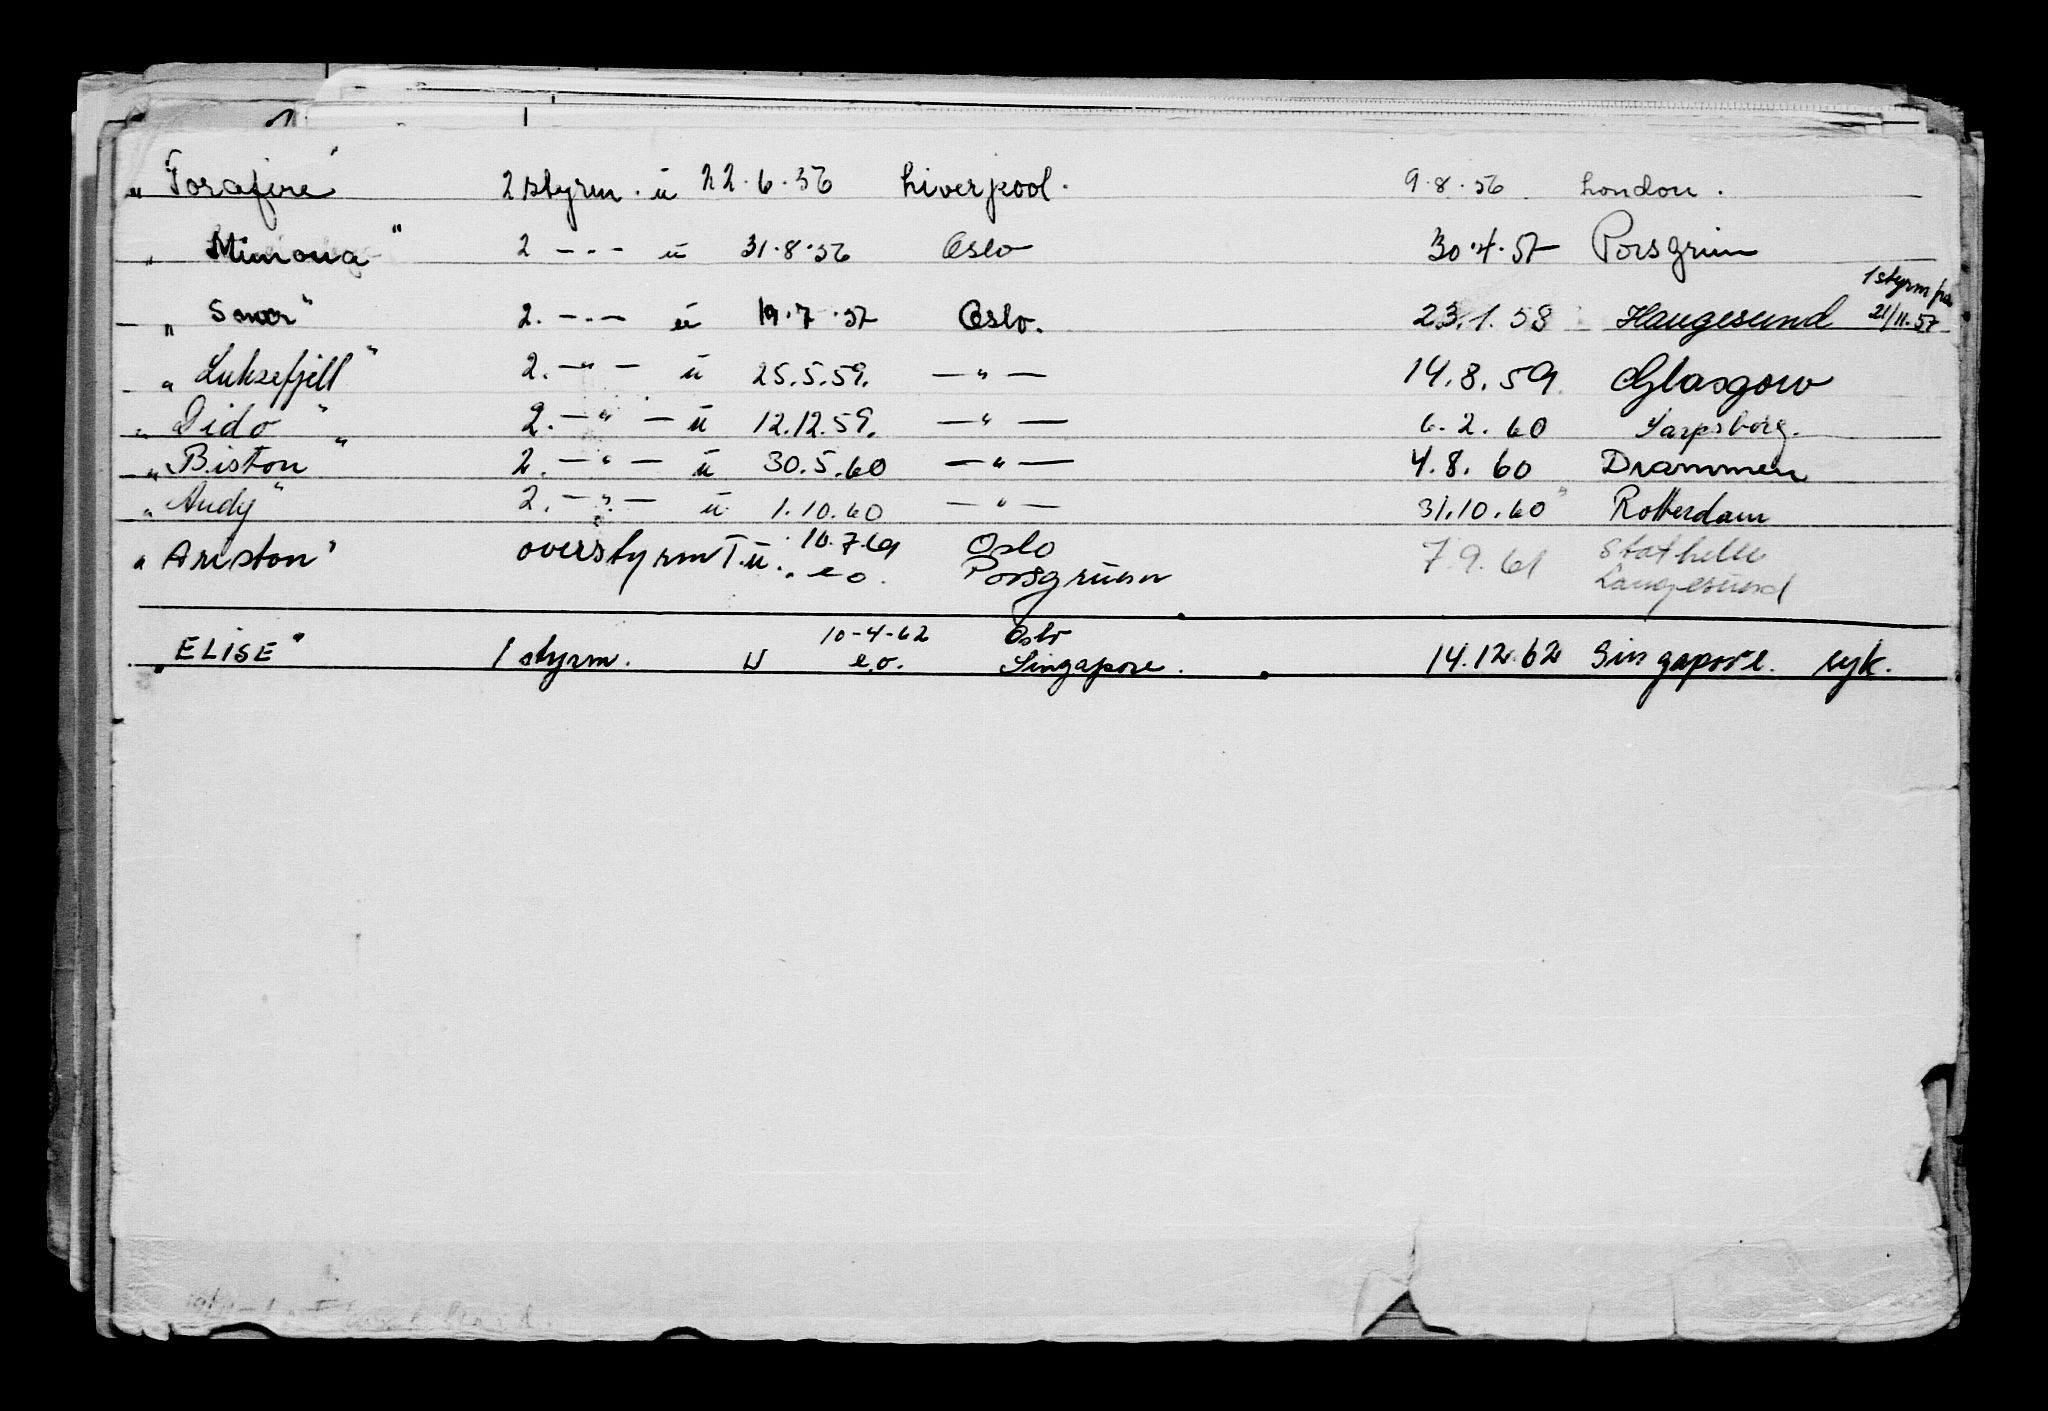 „ Torafire" 2 styrm. u 22.6.56 Liverpool. 9.8.56 London.
„ Mimona" 2 -"- u 31.8.56 Oslo 30.4.57 Porsgrunn
1 styrm fra
„ Snar" 2. -"- u 19.7.57 Oslo. 23.1.58 Haugesund 21/11-57
„ Luksefjell" 2. -"- u 25.5.59. -"- 14.8.59 Glasgow
„ Dido" 2. -"- u 12.12.59. -"- 6.2.60 Sarpsborg.
„ Biston" 2. -"- u 30.5.60 -"- 4.8.60 Drammen
„ Andy" 2. -"- u 1.10.60 -"- 31.10.60 Rotterdam
„ Ariston" overstyrm T.u. 10.7.61 Oslo 7.9.61 Stathelle
e.o. Porsgrunn Langesund
10-4-62 Oslo
„ ELISE" 1 styrm. U e.o. Singapore. 14.12.62 Singapore. syk.